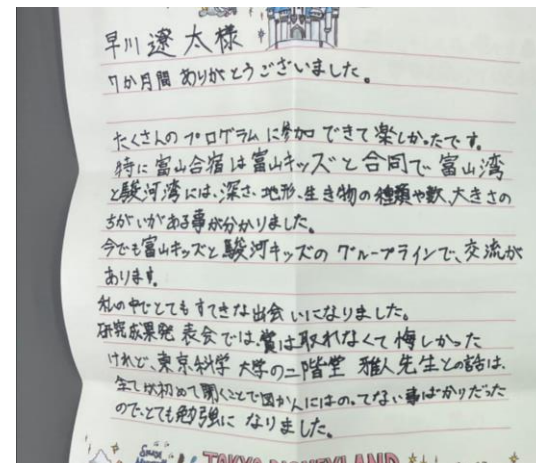 早川遼太様
7か月間ありがとうございました。
たくさんのプログラムに参加できて楽しかったです。
特に富山合宿は富山キッズと合同で富山湾
と駿河湾には、深さ、地形、生き物の種類や数、大きさの
ちがいがある事が分かりました。
今でも富山キッズと駿河キッズのグループラインで、交流が
あります。
私の中でとてもすてきな出会いになりました。
研究成果発表会では、賞は取れなくて悔しかった
けれど、東京科学大学の二階堂雅人先生との話は、
全てが初めて聞くことで図かんにはのってない事ばかりだった
ので、とても勉強になりました。
TOKYO DISNEYLAND